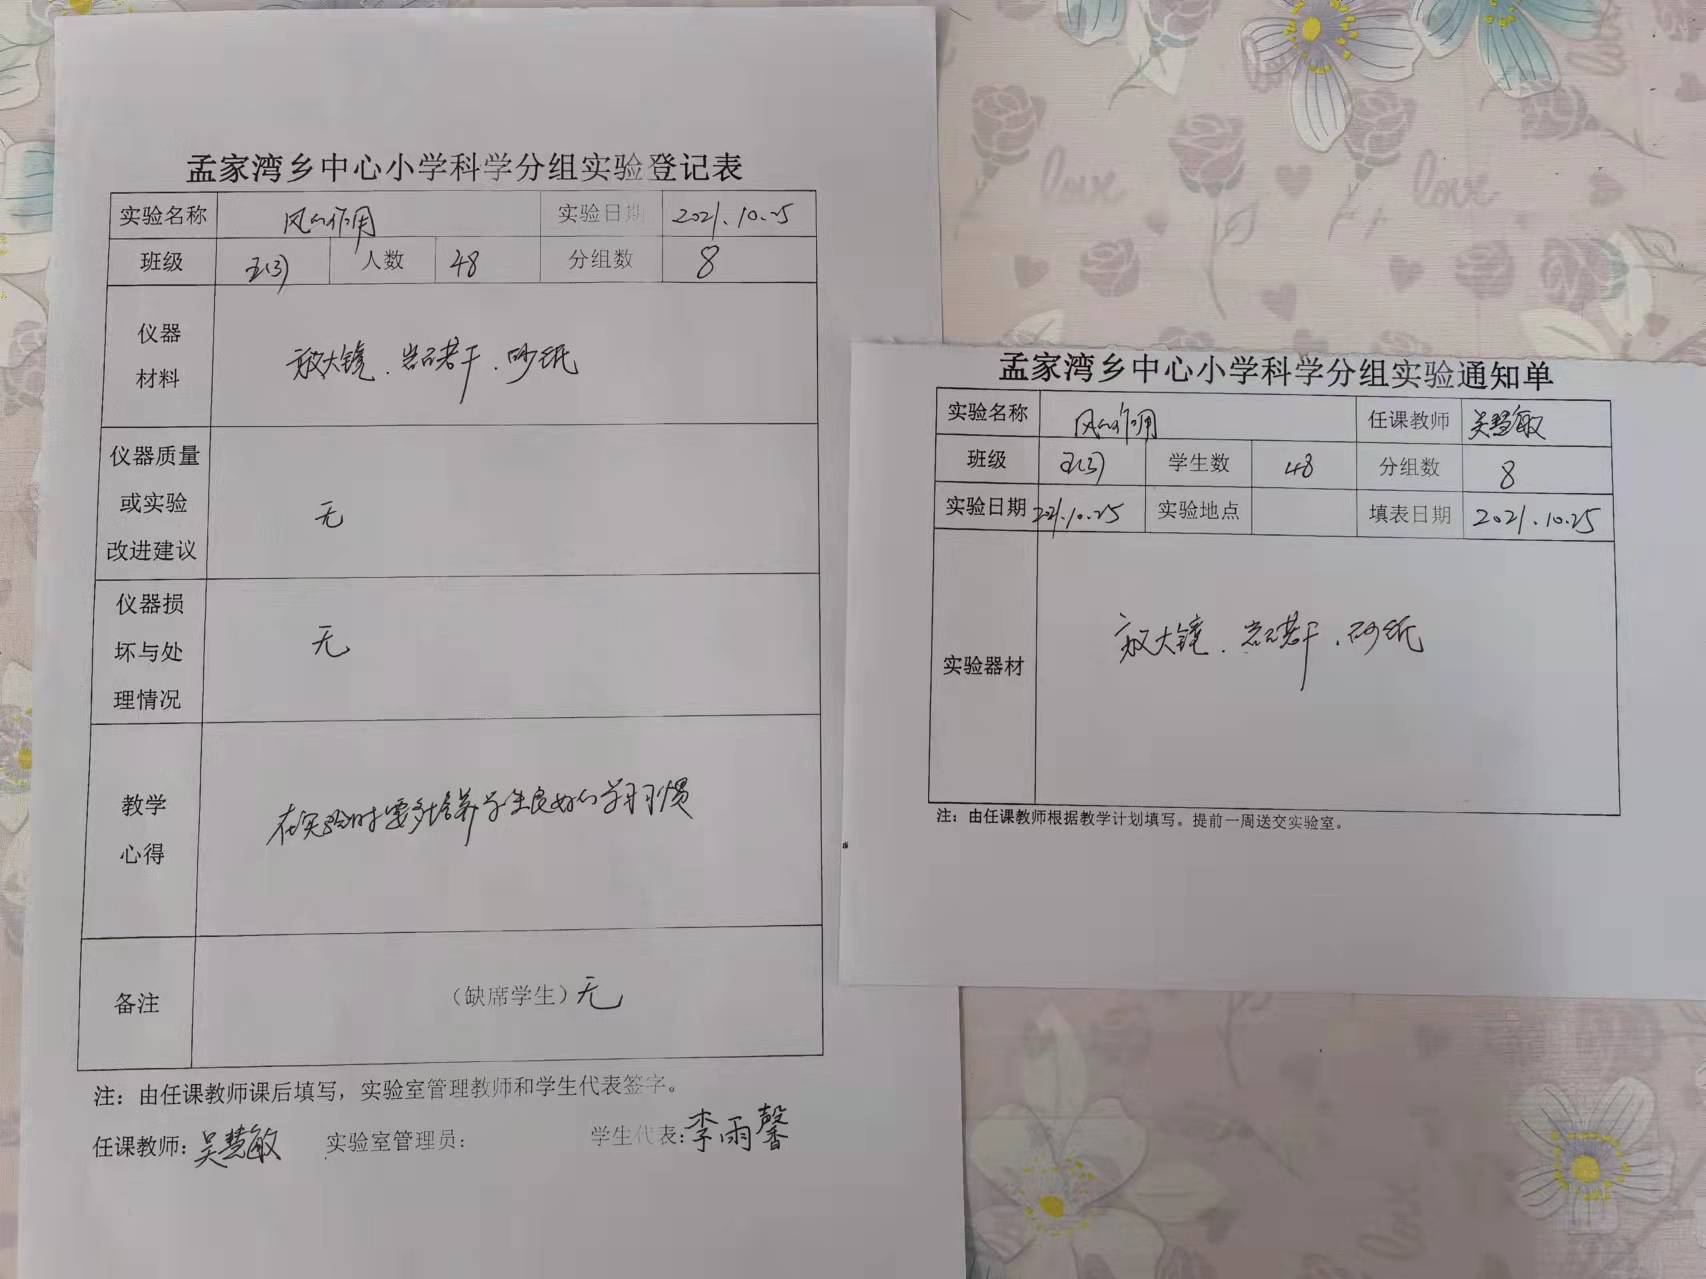 孟家湾乡中心小学科学分组实验登记表
实验名称 风的作用 实验日期 2021.10.25
班级 五(3) 人数 48 分组数 8
仪器
材料
放大镜、岩石若干、砂纸
仪器质量
或实验
改进建议
无
仪器损
坏与处
理情况
无
教学
心得
在实验时要多培养学生良好的学习习惯
备注 (缺席学生)无
注：由任课教师课后填写，实验室管理教师和学生代表签字。
任课教师：吴慧敏 实验室管理员： 学生代表：李雨馨
孟家湾乡中心小学科学分组实验通知单
实验名称 风的作用 任课教师 吴慧敏
班级 五(3) 学生数 48 分组数 8
实验日期 2021.10.25 实验地点 填表日期 2021.10.25
实验器材 放大镜、岩石若干、砂纸
注：由任课教师根据教学计划填写。提前一周送交实验室。